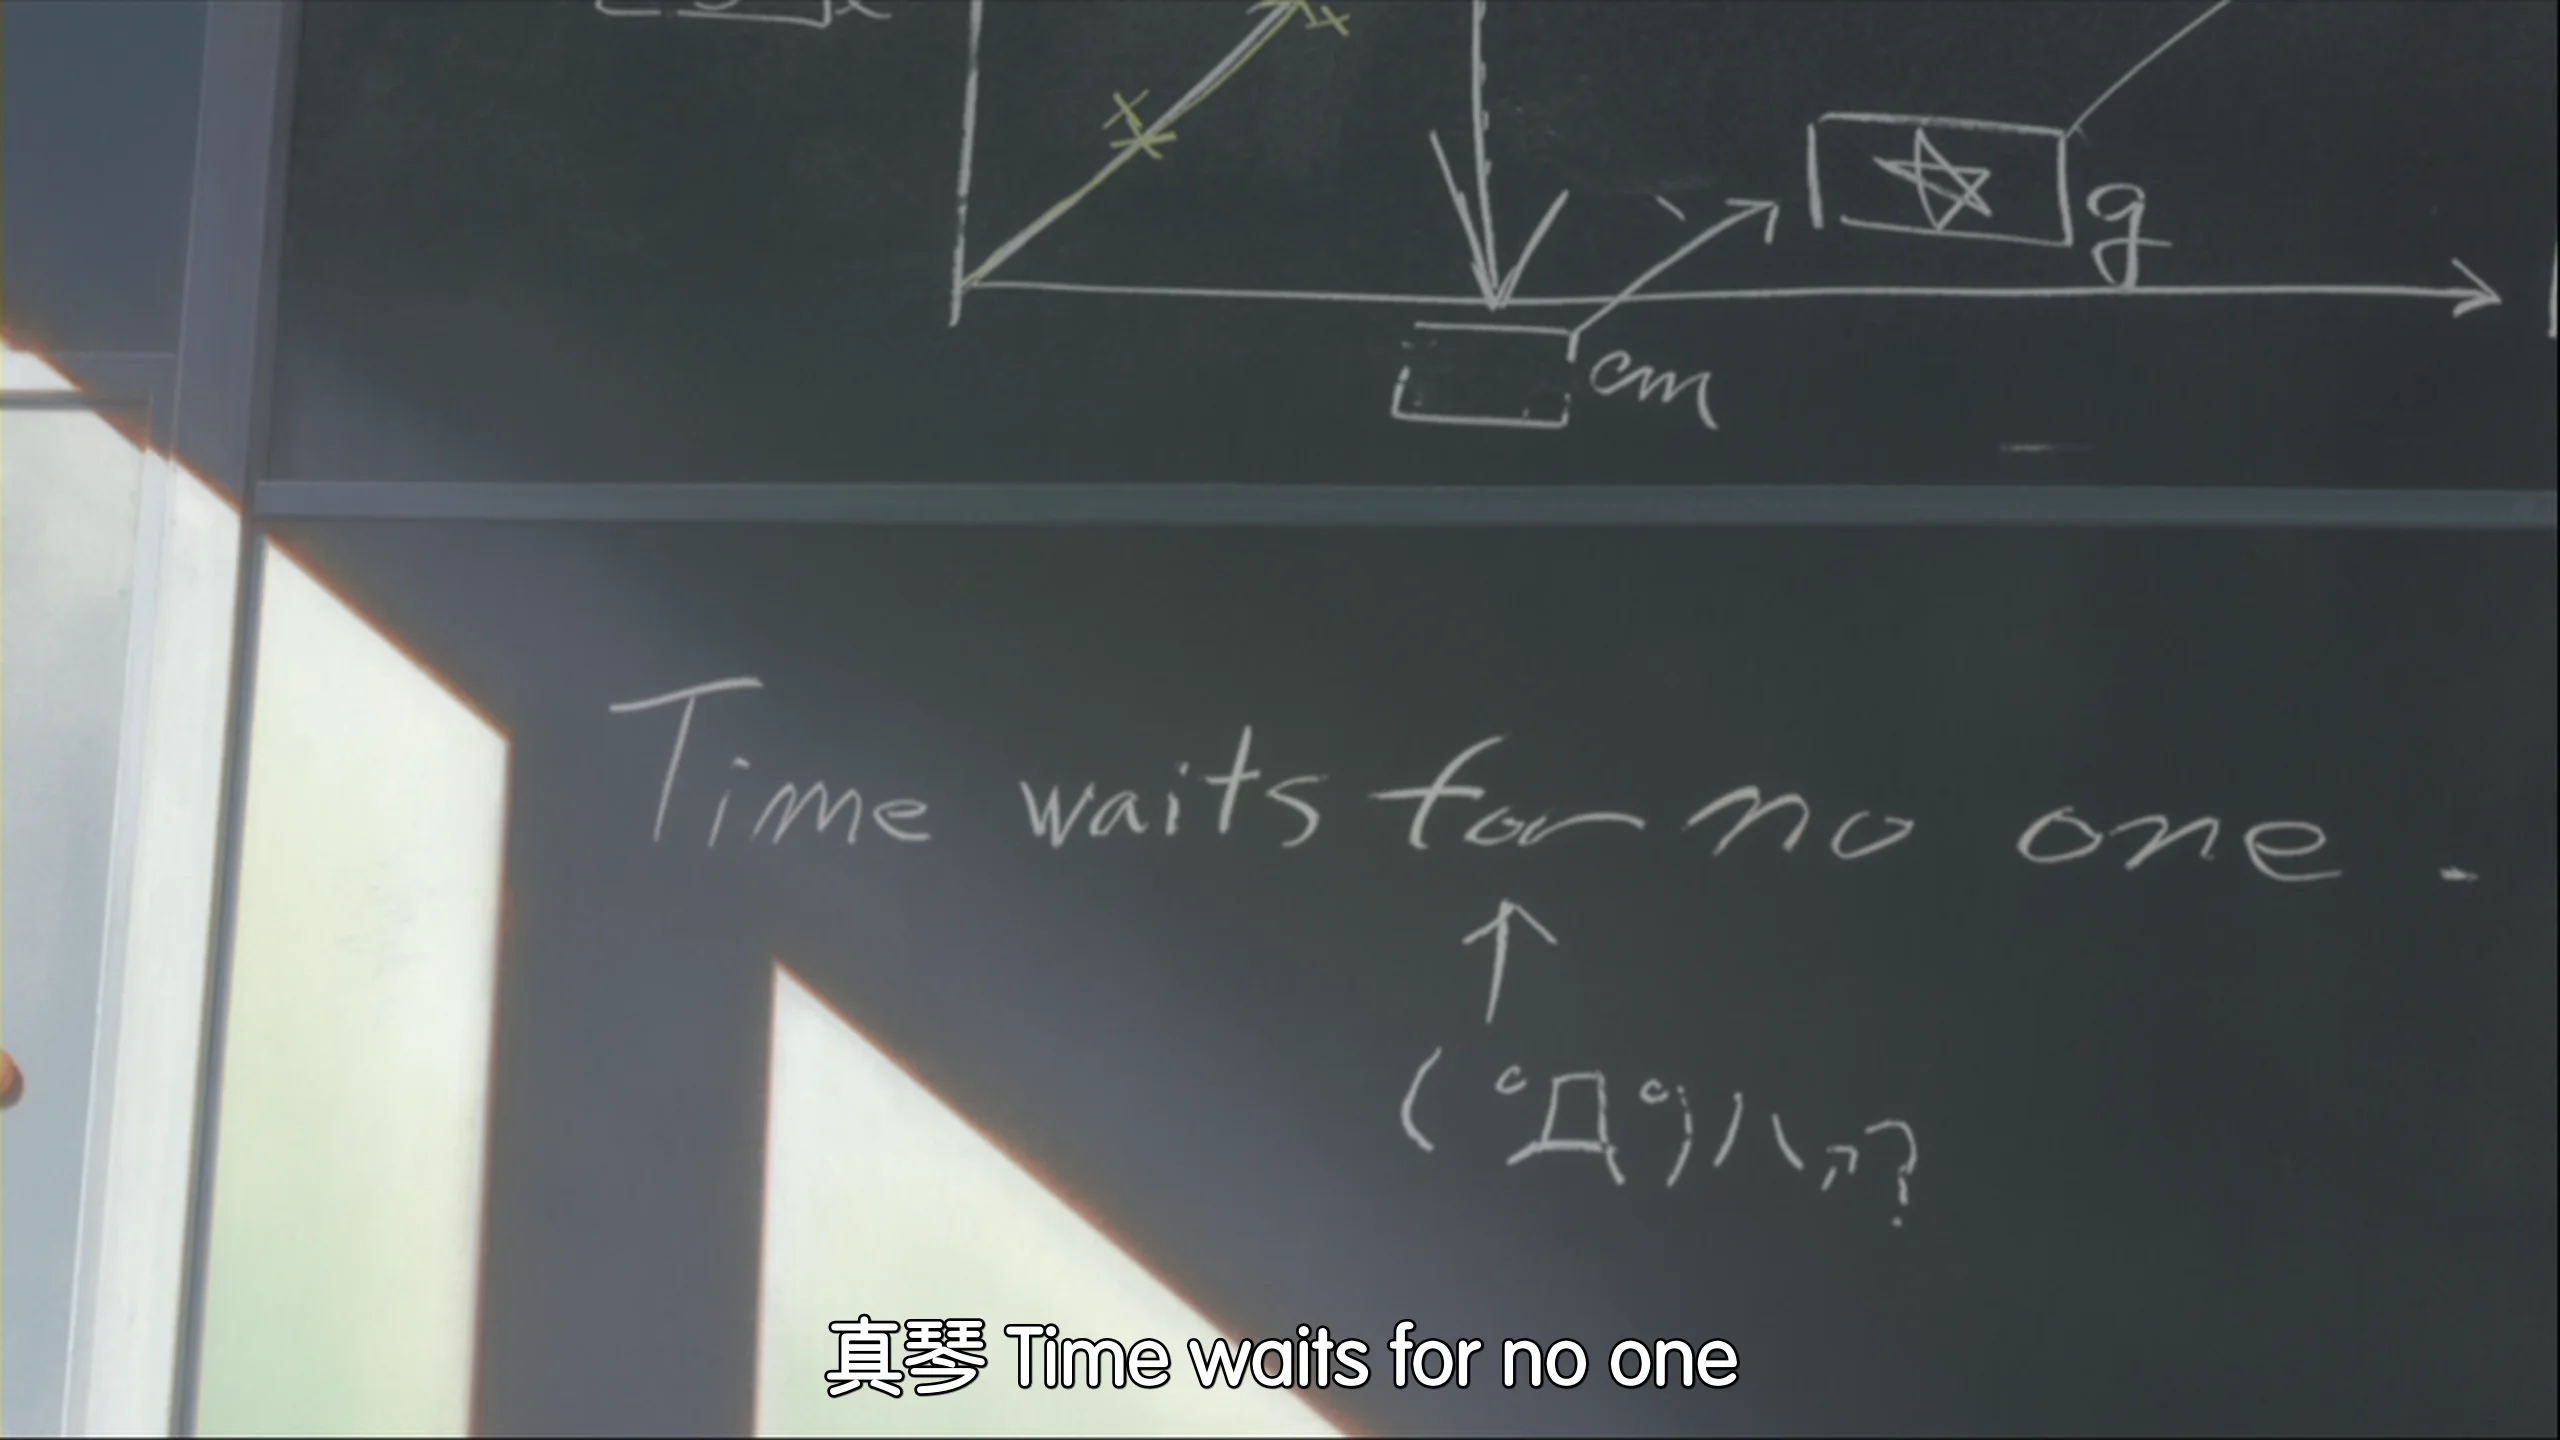 g
cm
Time waits for no one.
↑
(゚Д゚)ハァ?
真琴 Time waits for no one